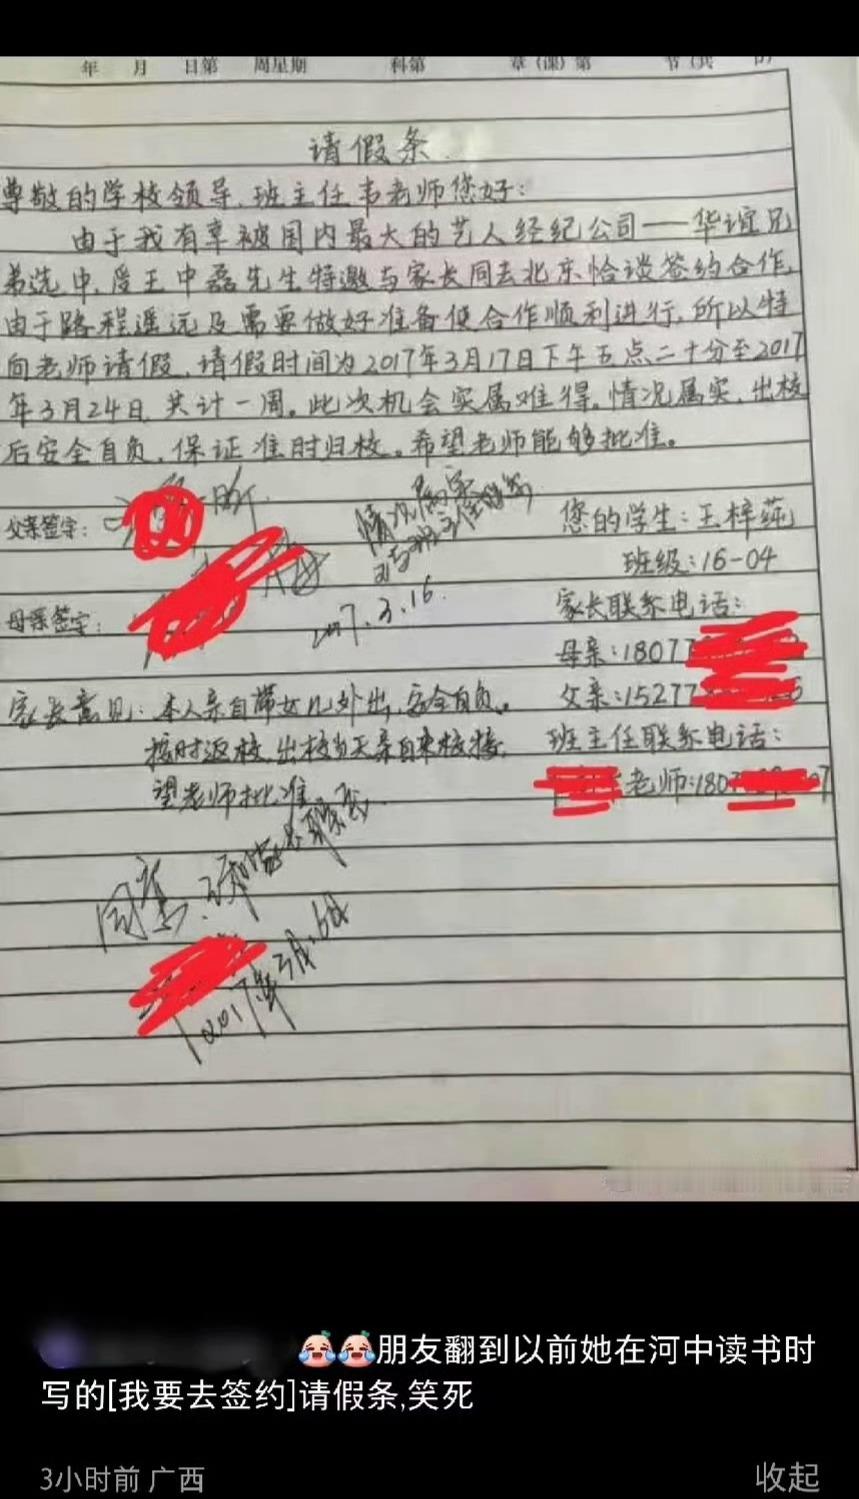 年 月 日第 周星期 科第 章(课)第 节(共
请假条
尊敬的学校领导、班主任韦老师您好：
由于我有幸被国内最大的艺人经纪公司——华谊兄
弟选中，受王中磊先生特邀与家长同去北京恰谈签约合作，
由于路程遥远及需要做好准备使合作顺利进行，所以特
向老师请假，请假时间为2017年3月17日下午五点二十分至2017
年3月24日，共计一周。此次机会实属难得。情况属实，出校
后安全自负，保证准时归校。希望老师能够批准。
父亲签字：
情况属实
2017.3.16.
母亲签字：
您的学生：王梓莼
班级：16-04
家长联系电话：
母亲：1807
父亲：15277
班主任联系电话：
老师：180
家长意见：本人亲自带女儿外出，安全自负。
按时返校，出校当天亲自来校接，
望老师批准。
同意
2017年3月16日
😂😂朋友翻到以前她在河中读书时
写的[我要去签约]请假条,笑死
3小时前 广西
收起